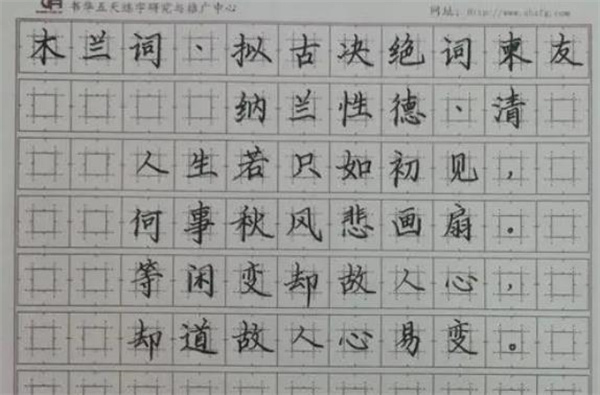 书华五天练字研究与推广中心 网址：Http://www.shzfg.com
木兰词、拟古决绝词柬友
纳兰性德、清
人生若只如初见，
何事秋风悲画扇。
等闲变却故人心，
却道故人心易变。